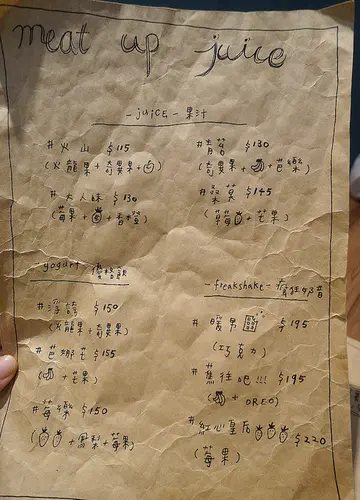 meat up juice
- juice - 果汁
# 火山 $115
(火龍果 + 奇異果 +
# 大人味 $130
(莓果 + + 香橙)
# 青 $130
(奇異果 + + 芭樂)
$145
+ 芒果)
yogurt 優格飲
$150
(火龍果 + 奇異果)
# 芭娜芒 $155
( + 芒果)
# 莓 樂 $150
( + 鳳梨 + 莓果)
- freakshake - 瘋狂奶昔
# $195
(巧克力)
# 蕉往吧!!! $195
( + OREO)
# 紅心皇后 $220
(莓果)